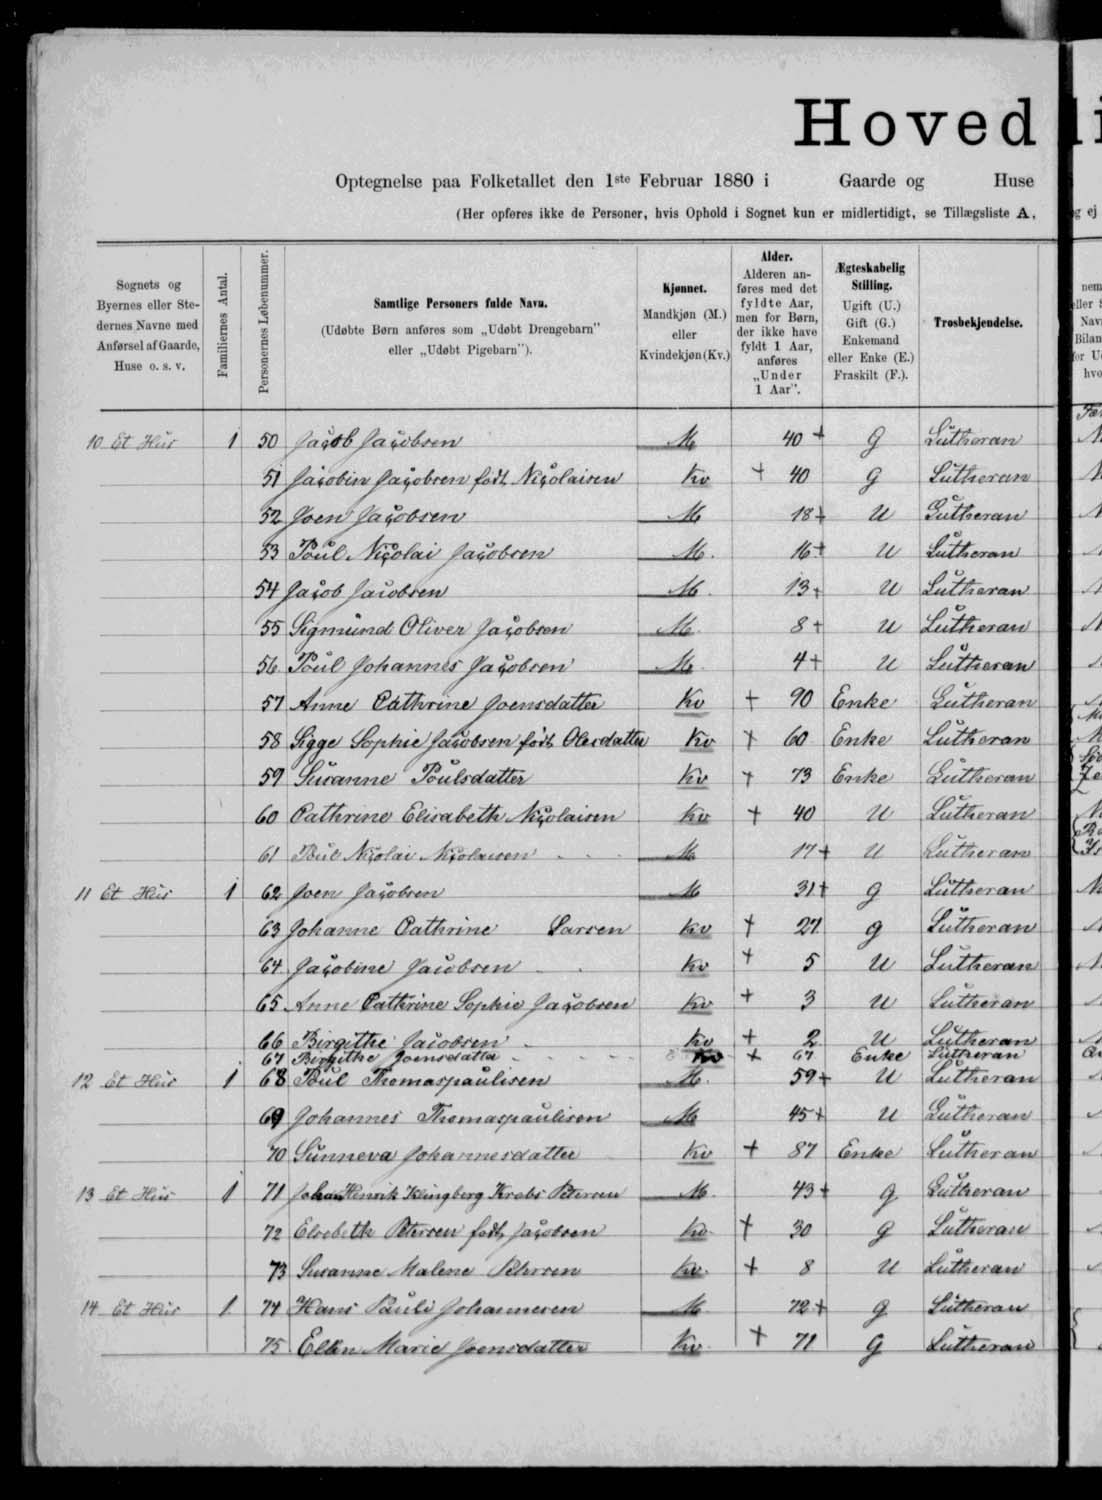 Hoved
Optegnelse paa Folketallet den 1ste Februar 1880 i Gaarde og Huse
(Her opføres ikke de Personer, hvis Ophold i Sognet kun er midlertidigt, se Tillægsliste A,
Sognets og Byernes eller Stedernes Navne med Anførsel af Gaarde, Huse o. s. v.
Familiernes Antal.
Personernes Løbenummer.
Samtlige Personers fulde Navn.
(Udøbte Børn anføres som „Udøbt Drengebarn"
eller „Udøbt Pigebarn").
Kjønnet.
Mandkjøn (M.)
eller
Kvindekjøn (Kv.)
Alder.
Alderen anføres med det fyldte Aar, men for Børn, der ikke have fyldt 1 Aar, anføres „Under 1 Aar".
Ægteskabelig Stilling.
Ugift (U.)
Gift (G.)
Enkemand
eller Enke (E.)
Fraskilt (F.).
Trosbekjendelse.
10 Et Hus 1 50 Jacob Jacobsen M 40 + G Lutheran
51 Jacobin Jacobsen født Nicolaisen Kv + 40 G Lutheran
52 Joen Jacobsen M 18 + U Lutheran
53 Poul Nicolai Jacobsen M. 16 + U Lutheran
54 Jacob Jacobsen M. 13 + U Lutheran
55 Sigmund Oliver Jacobsen M. 8 + U Lutheran
56 Poul Johannes Jacobsen M. 4 + U Lutheran
57 Anne Cathrine Joensdatter Kv + 90 Enke Lutheran
58 Sigge Sophie Jacobsen født Olesdatter Kv + 60 Enke Lutheran
59 Susanne Poulsdatter Kv + 73 Enke Lutheran
60 Cathrine Elisabeth Nicolaisen Kv + 40 U Lutheran
61 Poul Nicolai Nicolaisen M 17 + U Lutheran
11 Et Hus 1 62 Joen Jacobsen M 31 + G Lutheran
63 Johanne Cathrine Larsen Kv + 27 G Lutheran
64 Jacobine Jacobsen Kv + 5 U Lutheran
65 Anne Cathrine Sophie Jacobsen Kv + 3 U Lutheran
66 Birgithe Jacobsen Kv + 2 U Lutheran
67 Birgithe Joensdatter Kv + 67 Enke Lutheran
12 Et Hus 1 68 Poul Thomaspaulisen M. 59 + U Lutheran
69 Johannes Thomaspaulisen M 45 + U Lutheran
70 Sunneva Johannesdatter Kv + 87 Enke Lutheran
13 Et Hus 1 71 Johan Henrik Klingberg Krebs Petersen M. 43 + G Lutheran
72 Elsebeth Petersen født Jacobsen Kv. + 30 G Lutheran
73 Susanne Malene Petersen Kv. + 8 U Lutheran
14 Et Hus 1 74 Hans Pauli Johannesen M 72 + G Lutheran
75 Ellen Marie Joensdatter Kv. + 71 G Lutheran